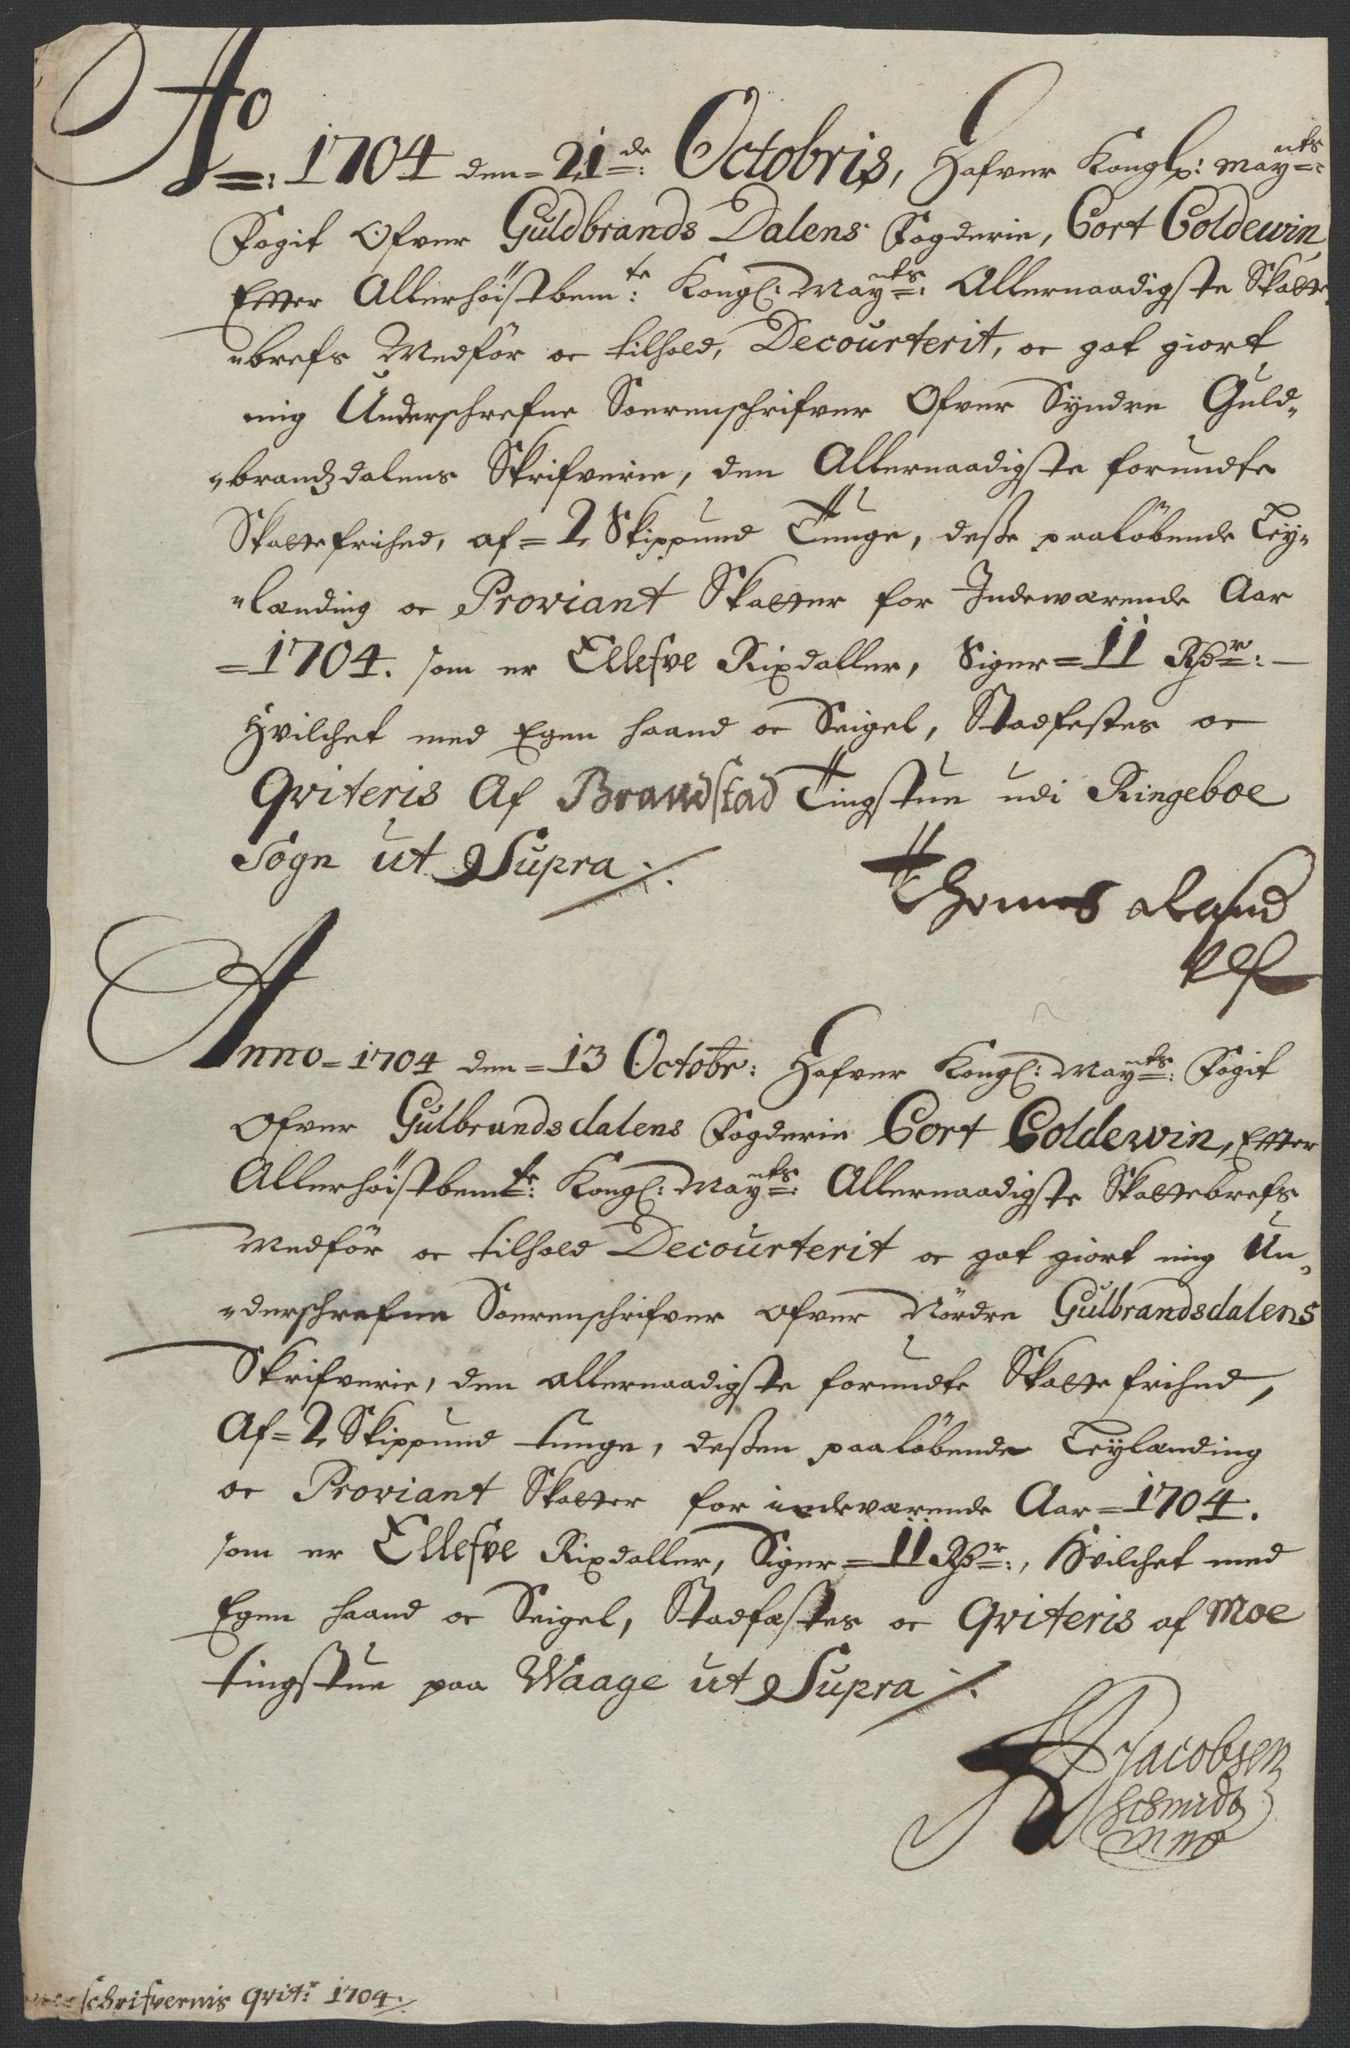 Ao
=: 1704 den = 21de: Octobris, Hafver Kongl: Mayts:
Fogit Ofver Guldbrands Dalens Fogderie, Cort Coldewin
Etter Allerhöistbemte: Kongl: Mayts: Allernaadigste Skatte
"brefs Medför oc tilhold, Decourterit, oc got giort
mig Underschrefne Soerenschrifver Ofver Syndre Guld"
"brandzdalens Skrifverie, den Allernaadigste forundte
Skattefrihed, af = 2 Skippund Tunge, desse paaløbende Ley"
"lænding oc Proviant Skatter for Indeværende Aar
= 1704. som er Ellefve Rixdaller, Siger = 11 Rdr: —
Hvilchet med Egen haand oc Seigel, Stadfestes oc
Qviteris Af Brandstad Tingstue udi Ringeboe
Sogn ut Supra ./.
Thomas

Anno = 1704 den = 13 Octobr: Hafver Kongl: Mayts: Fogit
Ofver Gulbrandsdalens Fogderie Cort Coldewin, Etter
Allerhöistbemte: Kongl: Mayts: Allernaadigste Skattebrefs
Medför oc tilhold Decourterit oc got giort mig Un"
"derschrefne Soerenschrifver ofver Nördre Gulbrandsdalens
Skrifverie, den allernaadigste forundte Skatte frihed,
Af = 2 Skippund tunge, dessen paalöbende Leylænding
oc Proviant Skatter for indeværende Aar = 1704.
som er Ellefve Rixdaller, Siger = 11 Rdr:, Hvilchet med
Egen haand oc Seigel, Stadfæstes oc Qviteris af Moe
tingstue paa Waage ut Supra ./.
Jacobsen
Schmidt
mp
schrifvernis qvitr: 1704 ./.